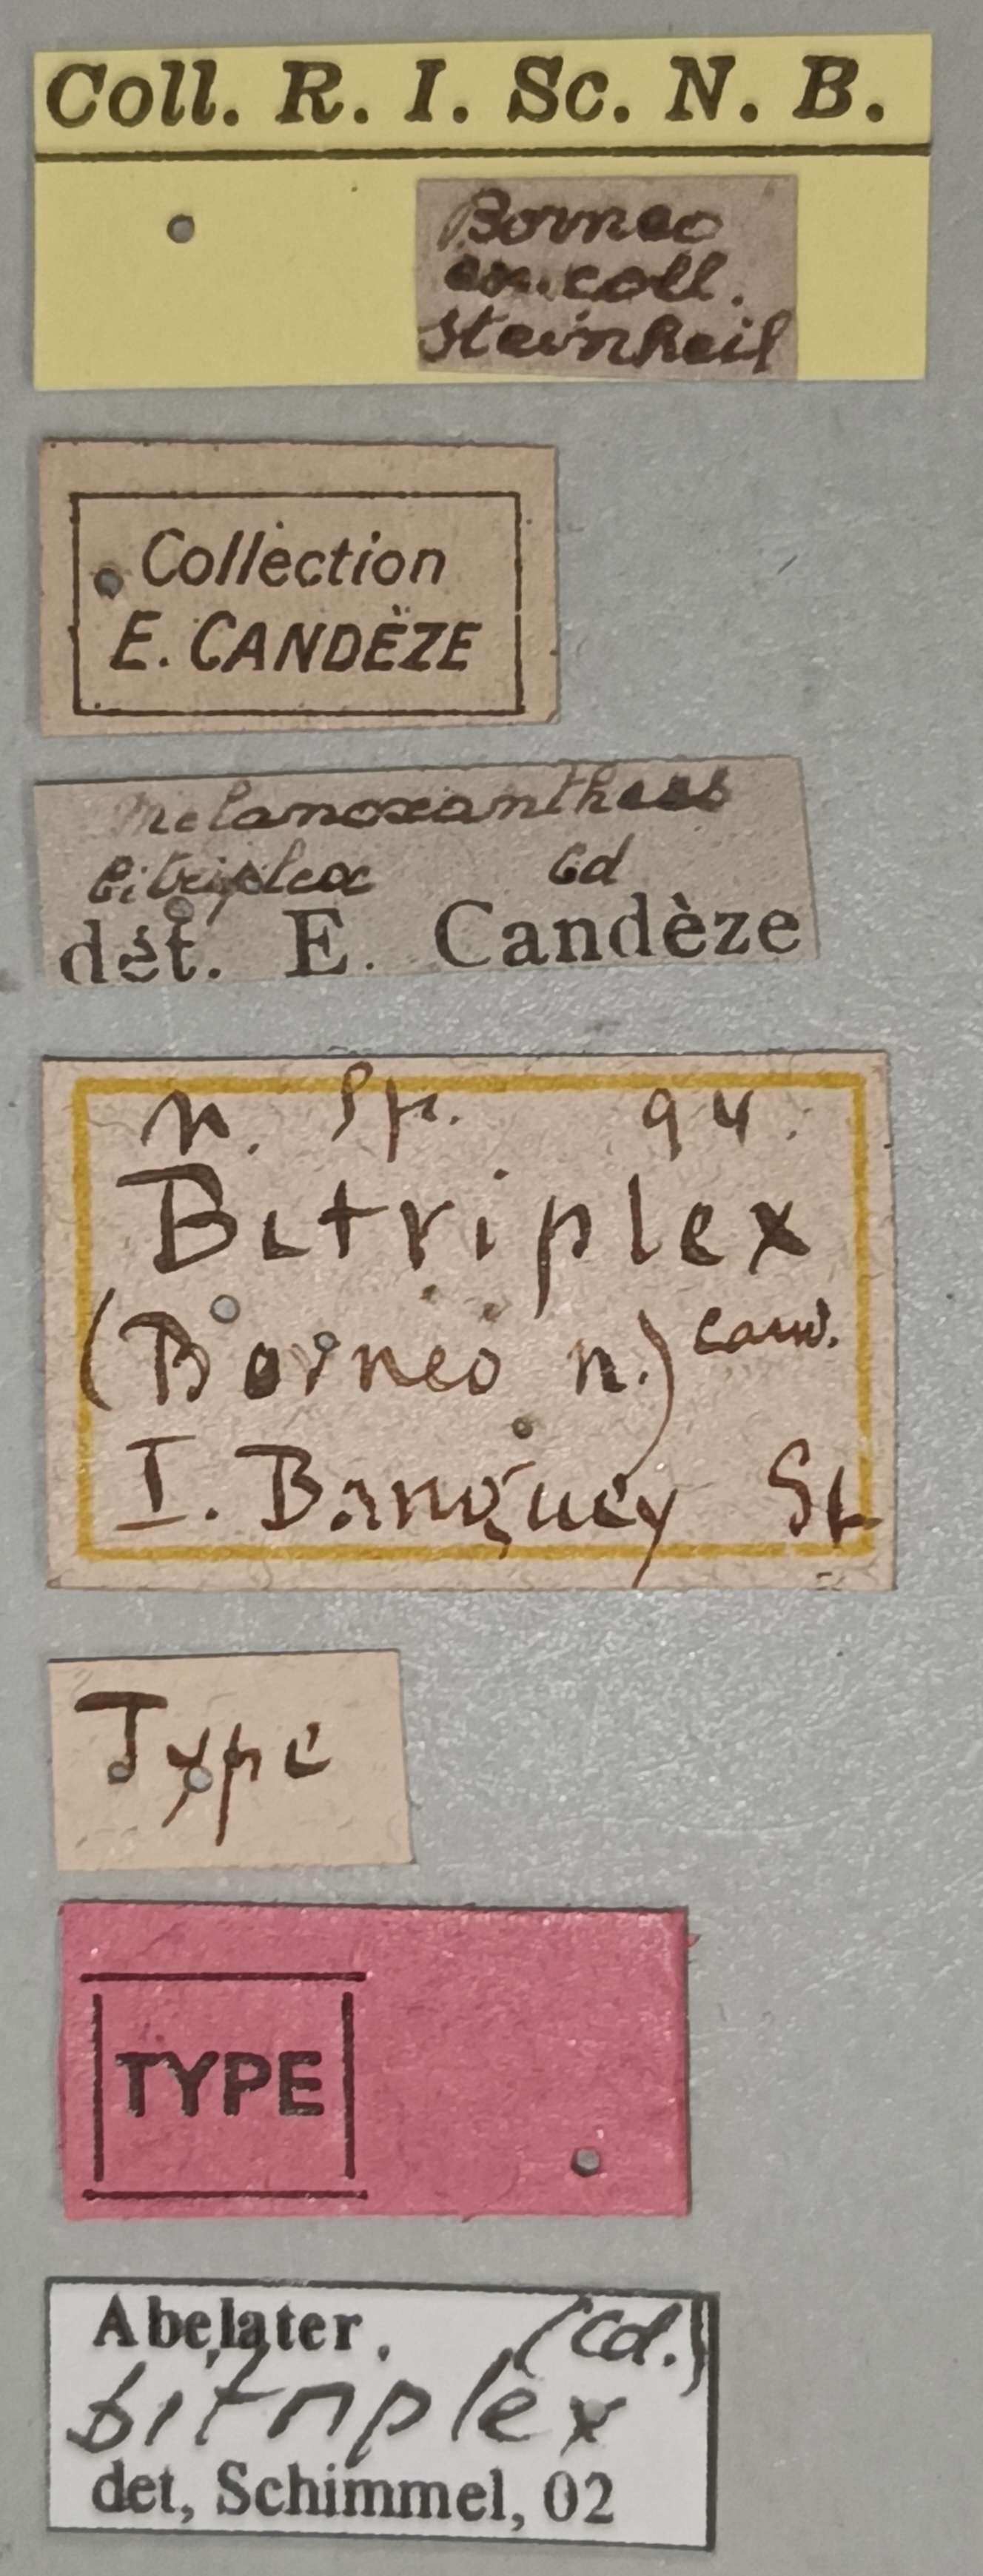 Coll. R. I. Sc. N. B.
Borneo
ex. coll.
Steinheil
Collection
E. CANDÈZE
Melanoxanthus
bitriplex Cd
dét. E. Candèze
n. sp. 94.
Bitriplex
(Borneo n.) Cand.
I. Banguey St
Type
TYPE
Abelater. (Cd.)
bitriplex
det, Schimmel, 02